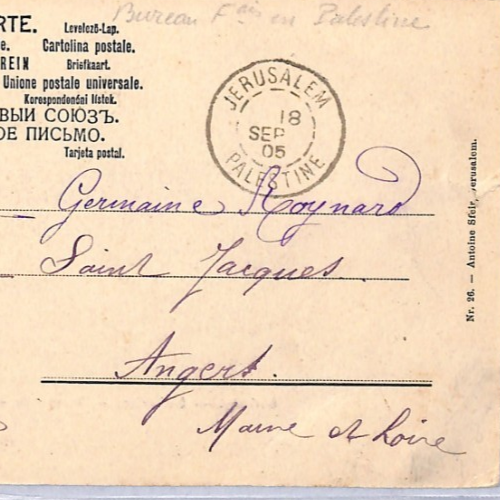 Bureau Fais en Palestine
RTE. Levelező-Lap.
e. Cartolina postale.
REIN Briefkaart.
Unione postale universale.
Korespondenční lístek.
ВЫЙ СОЮЗЪ.
ОЕ ПИСЬМО.
Tarjeta postal.
JERUSALEM
18
SEP
05
PALESTINE
Germaine Roynard
Saint Jacques
Angers.
Maine et Loire
Nr. 26. — Antoine Sfeir, Jerusalem.